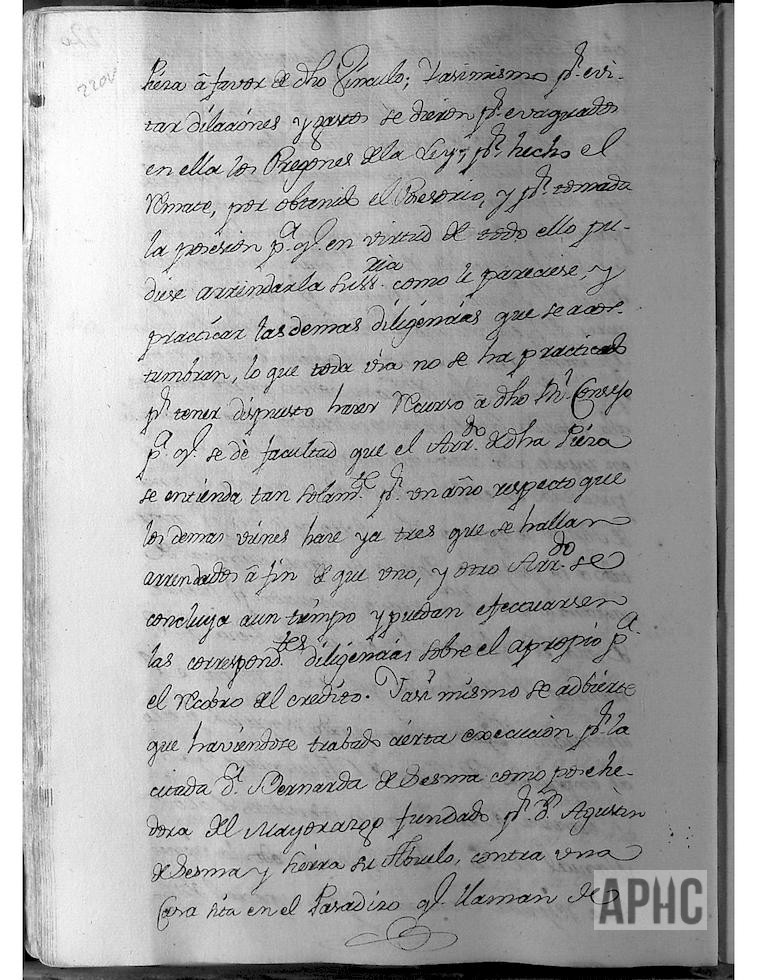 220v
Pieza â favor de dho Vinculo; Yasimismo pr. evi-
tar dilaciones y gastos se dieron pr. evaquados
en ella los Pregones de la Ley, pr. hecho el
Remate, por obtenido el Posesorio, y pr. tomada
la posesion pa. qe. en virtud de todo ello pu-
diese arrindarla su ssria. como le pareciese, y
practicar las demas diligencias que se acos-
tumbran, lo que toda via no se ha practicado
pr. tener dispuesto hazer Recurso â dho Rl. Consejo
pa. qe. se dè facultad que el Arrdo. de dha Pieza
se entienda tan solamte. pr. un año respecto que
los demas vienes hace ya tres que se hallan
arrendados â fin de que uno, y otro Arrdo. se
concluya aun tiempo y puedan efectuarsen
las correspondtes. diligencias sobre el apropio pa.
el Recobro del credito. Yasi mismo se adbierte
que haviendose trabado cierta execucion pr. la
citada Da. Bernarda de Sesma como posehe-
dora del Mayorazgo fundado pr. Dn. Agustin
de Sesma y Sierra su Abuelo, contra una
Casa sita en el Paradizo qe. llaman de
APHC